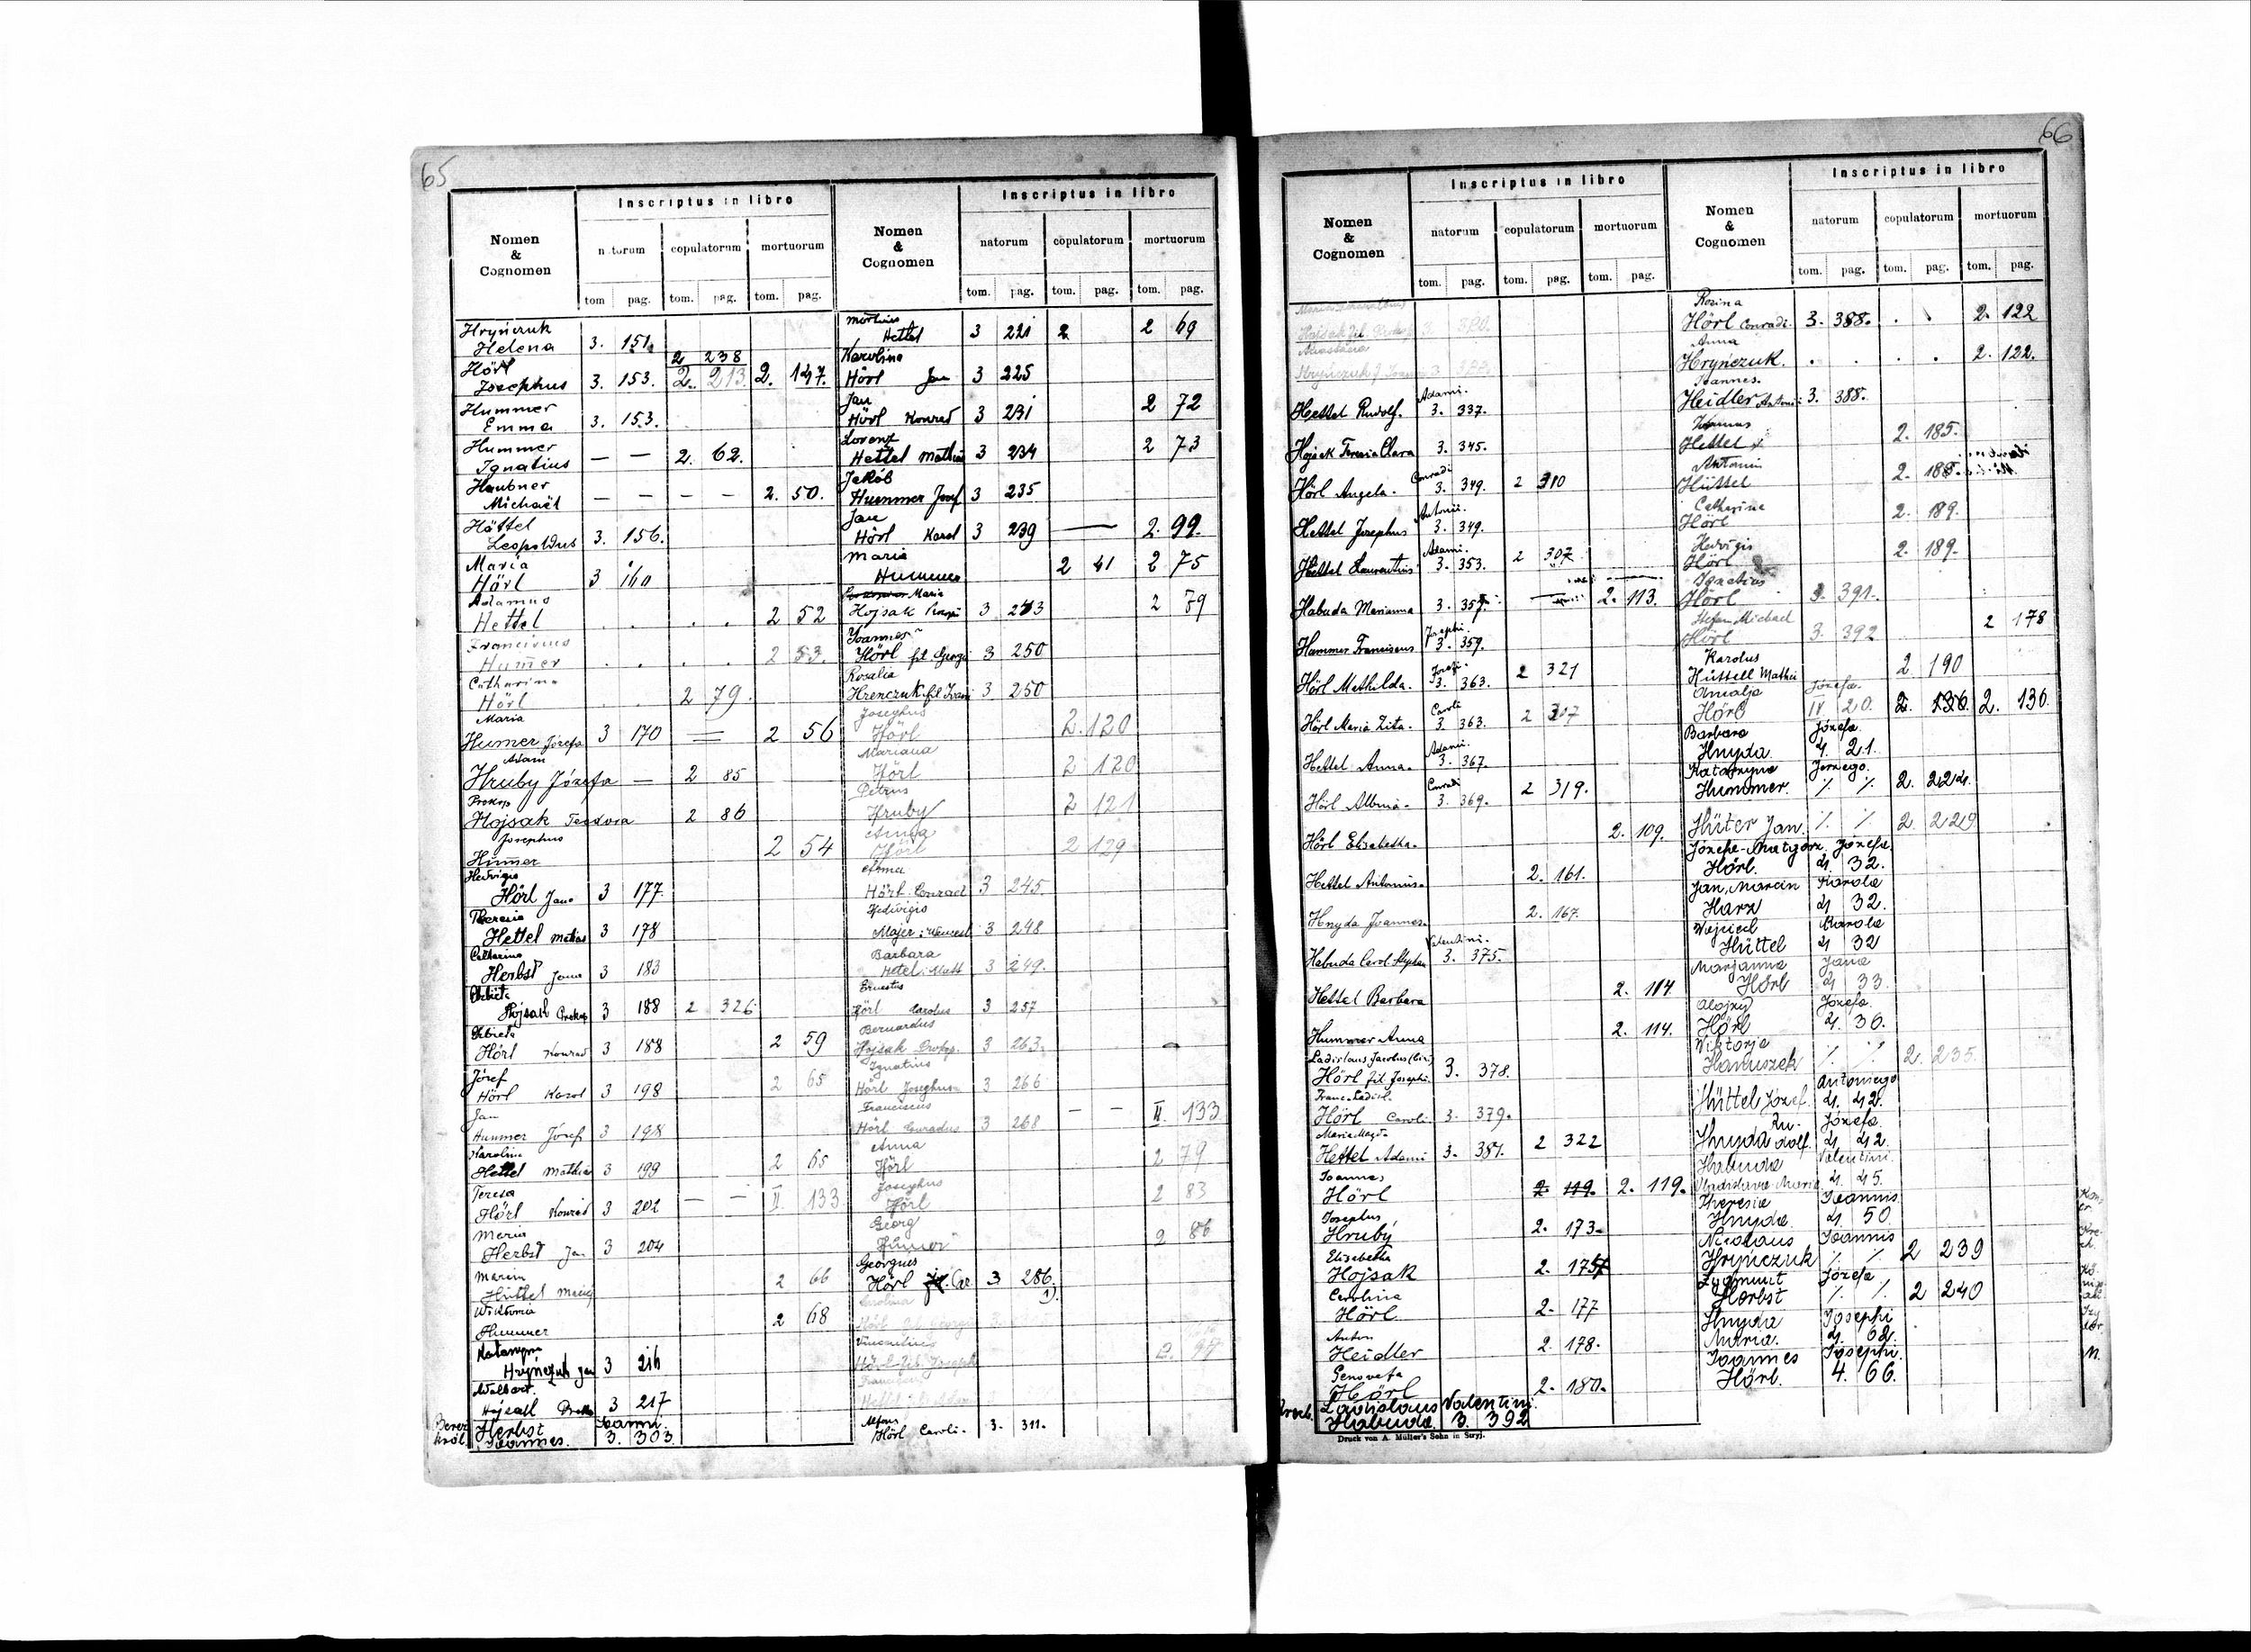 65
Inscriptus in libro
Nomen & Cognomen
natorum copulatorum mortuorum
tom pag. tom. pag. tom. pag.
Hryńczuk
Helena 3. 151.
2 238
Hörl
Josephus 3. 153. 2. 213 2. 147.
Hummer
Emma 3. 153.
Hummer
Ignatius — — 2. 62.
Haubner
Michaël — — — — 2. 50.
Hättel
Leopoldus 3. 156.
Maria
Hörl 3 160
Adamus
Hettel . . . . 2 52
Hum̄er . . . . 2 53.
Catharina
Hörl . . 2 79.
Maria
Humer Józefa 3 170 — 2 56
Adam
Hruby Józefa — 2 85
Prokop
Hojsak Teodora 2 86
Josephus
Hum̄er 2 54
Hedvigis
Hörl Jana 3 177.
Theresia
Hettel Matias 3 178
Catharina
Herbst Jana 3 183
Elżbieta
Hojsak Prokop 3 188 2 326
Elżbieta
Hörl Konrad 3 188 2 59
Józef
Hörl Karol 3 198 2 65
Jan
Hummer Józef 3 198
Karolina
Hettel Mathias 3 199 2 65
Teresa
Hörl Konrad 3 202 — — II. 133
Maria
Herbst Jan 3 204
Hüttel Maciej 2 66
Wiktoria
Hummer 2 68
Katarzyna
Hryńczuk Jan 3 216
Walbert.
Hojsak Prokop 3 217
Herbst Joanni.
Joannes. 3. 303.
Inscriptus in libro
Nomen & Cognomen
natorum copulatorum mortuorum
tom. pag. tom. pag. tom. pag.
Hettel 3 221 2 2 69
Karolina
Hörl Jan 3 225
Jan
Hörl Konrad 3 231 2 72
Lorenz
Hettel Mathias 3 234 2 73
Jakób
Hummer Josef 3 235
Jan
Hörl Karol 3 239 — 2. 99.
Maria
Hummer 2 41 2 75
Maria
Hojsak 3 243 2 79
Joannes
Hörl fil. Georgi 3 250
Rosalia
Hrenczuk fil Ivani 3 250
Josephus
Hörl 2. 120
Mariana
Hörl 2 120
Petrus
Hruby 2 121
Anna
Hörl 2 129
Anna
Hörl Conrad 3 245
Hedivigis
Majer: Wencesl 3 248
Barbara
Hetel: Math 3 249.
Ernestus
Hörl Carolus 3 257
Bernardus
Hojsak Prokop. 3 263.
Ignatius
Hörl Josephus 3 266
Franciscus
Hörl Conradus 3 268 — — II. 133
Anna
Hörl 2 79
Josephus
Hörl 2 83
Georg
Hum̄er 2 86
Georgius
Hörl Car 3 286.
Carolina
Vincentius
Hörl fil. Joseph 2. 94
Alfons
Hörl Caroli. 3. 311.
66
Inscriptus in libro
Nomen & Cognomen
natorum copulatorum mortuorum
tom. pag. tom. pag. tom. pag.
Anastasia
Adami.
Hettel Rudolf. 3. 337.
Hojsak Teresia Clara 3. 345.
Conradi
Hörl Angela. 3. 349. 2 310
Antonii.
Hettel Josephus 3. 349.
Adami.
Hettel Laurentius 3. 353. 2 307
Habuda Marianna 3. 357. 2. 113.
Josephi.
Hammer Franciscus 3. 359.
Josefi.
Hörl Mathilda. 3. 363. 2 321
Caroli
Hörl Maria Zita. 3. 363. 2 307
Adami.
Hettel Anna. 3. 367.
Conradi
Hörl Albina. 3. 369. 2 319.
Hörl Elisabetha. 2. 109.
Hettel Antonius. 2. 161.
Hnyda Joannes. 2. 167.
Valentini.
Habuda Carol Stephan 3. 375.
Hettel Barbara 2. 114
Hummer Anna 2. 114.
Ladislaus Jacobus (bin.)
Hörl fil Josephi 3. 378.
Franc. Ladisl.
Hörl Caroli 3. 379.
Maria Magd.
Hettel Adami 3. 387. 2 322
Joannes
Hörl 2. 119. 2. 119.
Josephus
Hruby 2. 173.
Elisabetha
Hojsak 2. 175
Carolina
Hörl 2. 177
Anton
Heidler 2. 178.
Genovefa
Hörl 2. 180.
Ladislaus Valentini.
Habuda. 3. 392
Druck von A. Müller's Sohn in Stryj.
Inscriptus in libro
Nomen & Cognomen
natorum copulatorum mortuorum
tom. pag. tom. pag. tom. pag.
Rosina
Hörl Conradi. 3. 388. . . 2. 122
Anna
Hryńczuk. . . . . 2. 122.
Joannes.
Heidler Antoni 3. 388.
Hettel 2. 185.
Antonin
Hüttel 2. 188.
Catherina
Hörl 2. 189.
Hedvigis
Hörl 2. 189.
Ignatius
Hörl 3. 391.
Stefan Michael
Hörl 3. 392 2 178
Karolus
Hüttell Mathii 2. 190
Amalja Józefa.
Hörl IV 20. 2. 136. 2. 130.
Barbara Józefa.
Hnyda 4. 21.
Katarzyna Jerzego.
Hummer. % % 2. 224.
Hüter Jan. % % 2. 229
Józefa-Małgorz. Józefa.
Hörl. 4. 32.
Jan, Marcin Karola
Harz 4 32.
Wojciech Karola
Hüttel 4 32
Marjanna Jana
Hörl 4 33.
Alojzy Józefa.
Hörl 4. 36.
Wiktorja
Hanuszek % % 2. 235.
Antoniego
Hüttel Józef. 4. 42.
Ru- Józefa.
Hnyda dolf. 4. 42.
Habuda Valentini.
Vladislava Maria. 4. 45.
Theresia Joannis.
Hnyda 4. 50.
Nicolaus Joannis
Hryńczuk % % 2 239
Zygmunt Józefa
Herbst % % 2 240
Hnyda Josephi
Maria. 4. 62.
Joannes Josephi.
Hörl. 4. 66.